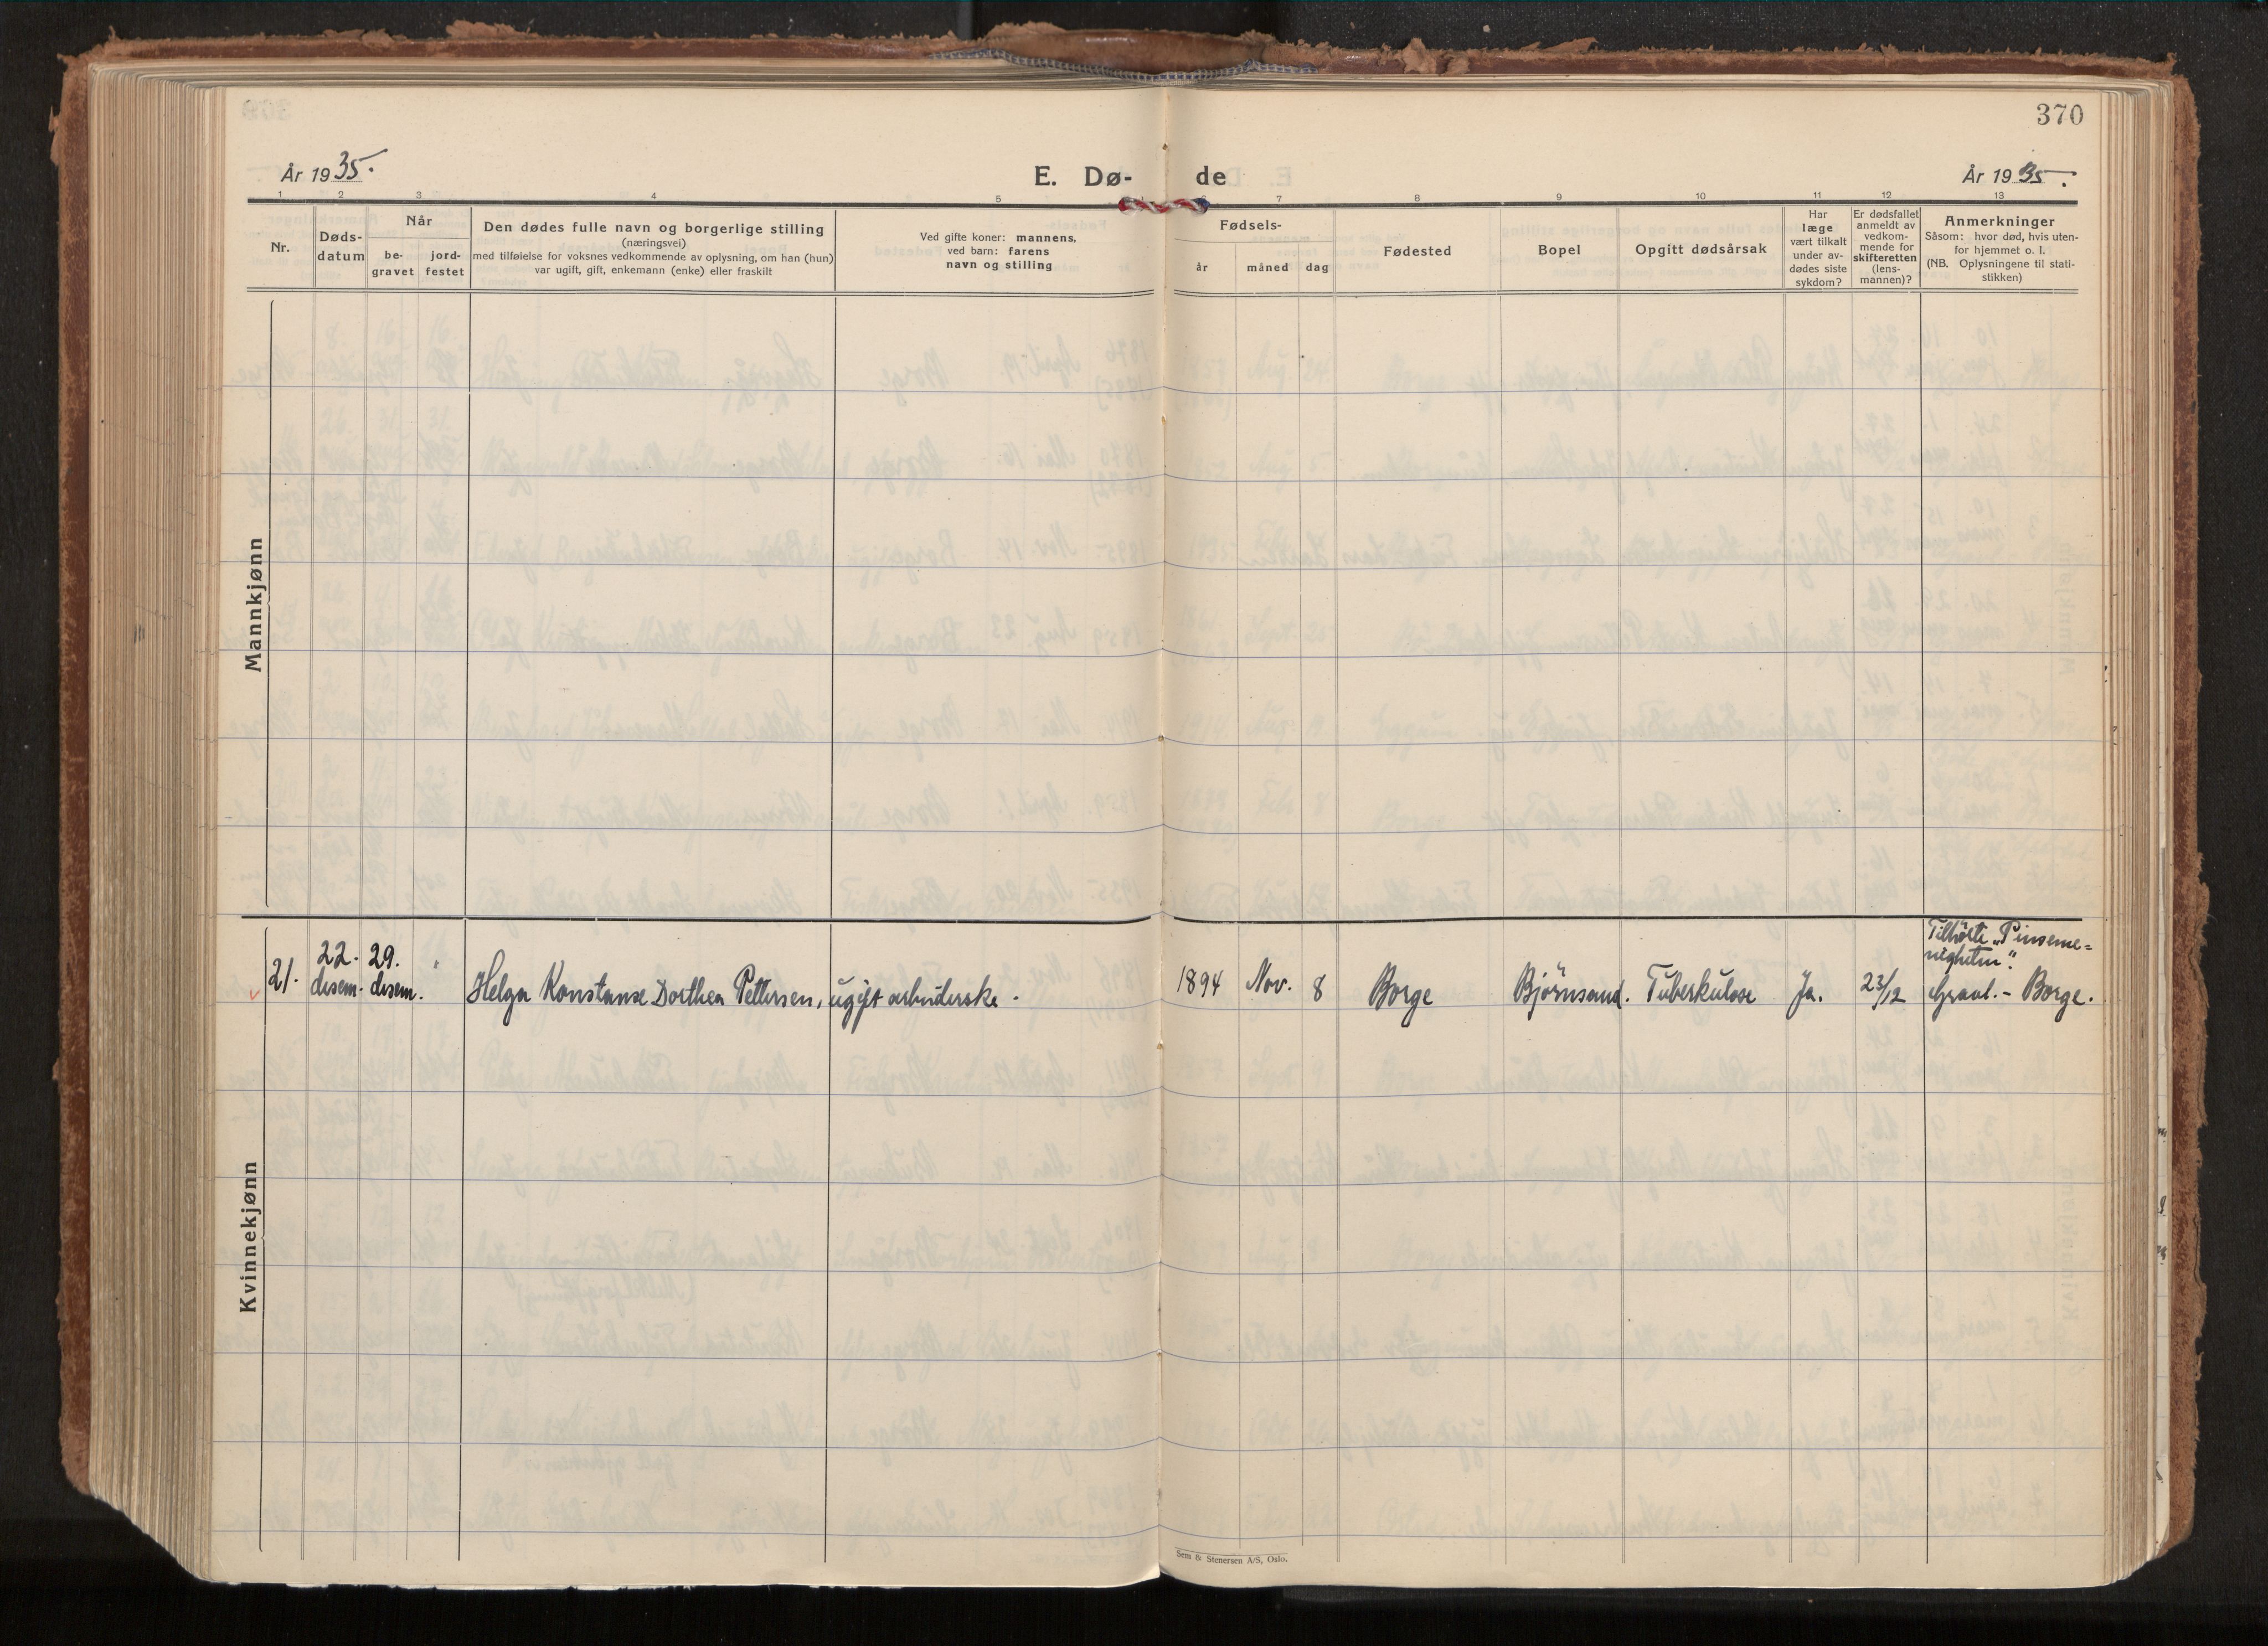 370
År 1935.
E. Dø-
de
År 1935.
1 2 3 4 5 6 7 8 9 10 11 12 13
Nr.
Døds-
datum
Når
be-
gravet
jord-
festet
Den dødes fulle navn og borgerlige stilling
(næringsvei)
med tilføielse for voksnes vedkommende av oplysning, om han (hun)
var ugift, gift, enkemann (enke) eller fraskilt
Ved gifte koner: mannens,
ved barn: farens
navn og stilling
Fødsels-
år
måned
dag
Fødested
Bopel
Opgitt dødsårsak
Har
læge
vært tilkalt
under av-
dødes siste
sykdom?
Er dødsfallet
anmeldt av
vedkom-
mende for
skifteretten
(lens-
mannen)?
Anmerkninger
Såsom: hvor død, hvis uten-
for hjemmet o. l.
(NB. Oplysningene til stati-
stikken)
Mannkjønn
Kvinnekjønn
21.
22.
desem.
29.
desem.
"
Helga Konstanse Dorthea Pettersen, ugift arbeiderske.
1894
Nov.
8
Borge
Björnsand.
Tuberkulose
Ja.
23/12
Tilhörte "Pinseme-
nigheten".
Gravl. - Borge.
Sem & Stenersen A/S, Oslo.